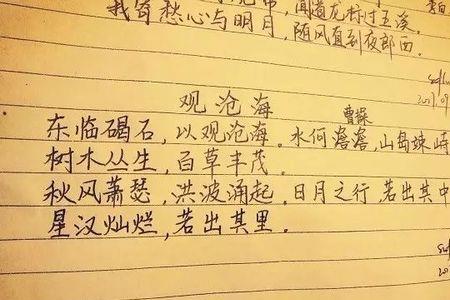 我寄愁心与明月，随风直到夜郎西。
观沧海
曹操
东临碣石，以观沧海。水何澹澹，山岛竦峙
树木丛生，百草丰茂。
秋风萧瑟，洪波涌起。日月之行，若出其中
星汉灿烂，若出其里。